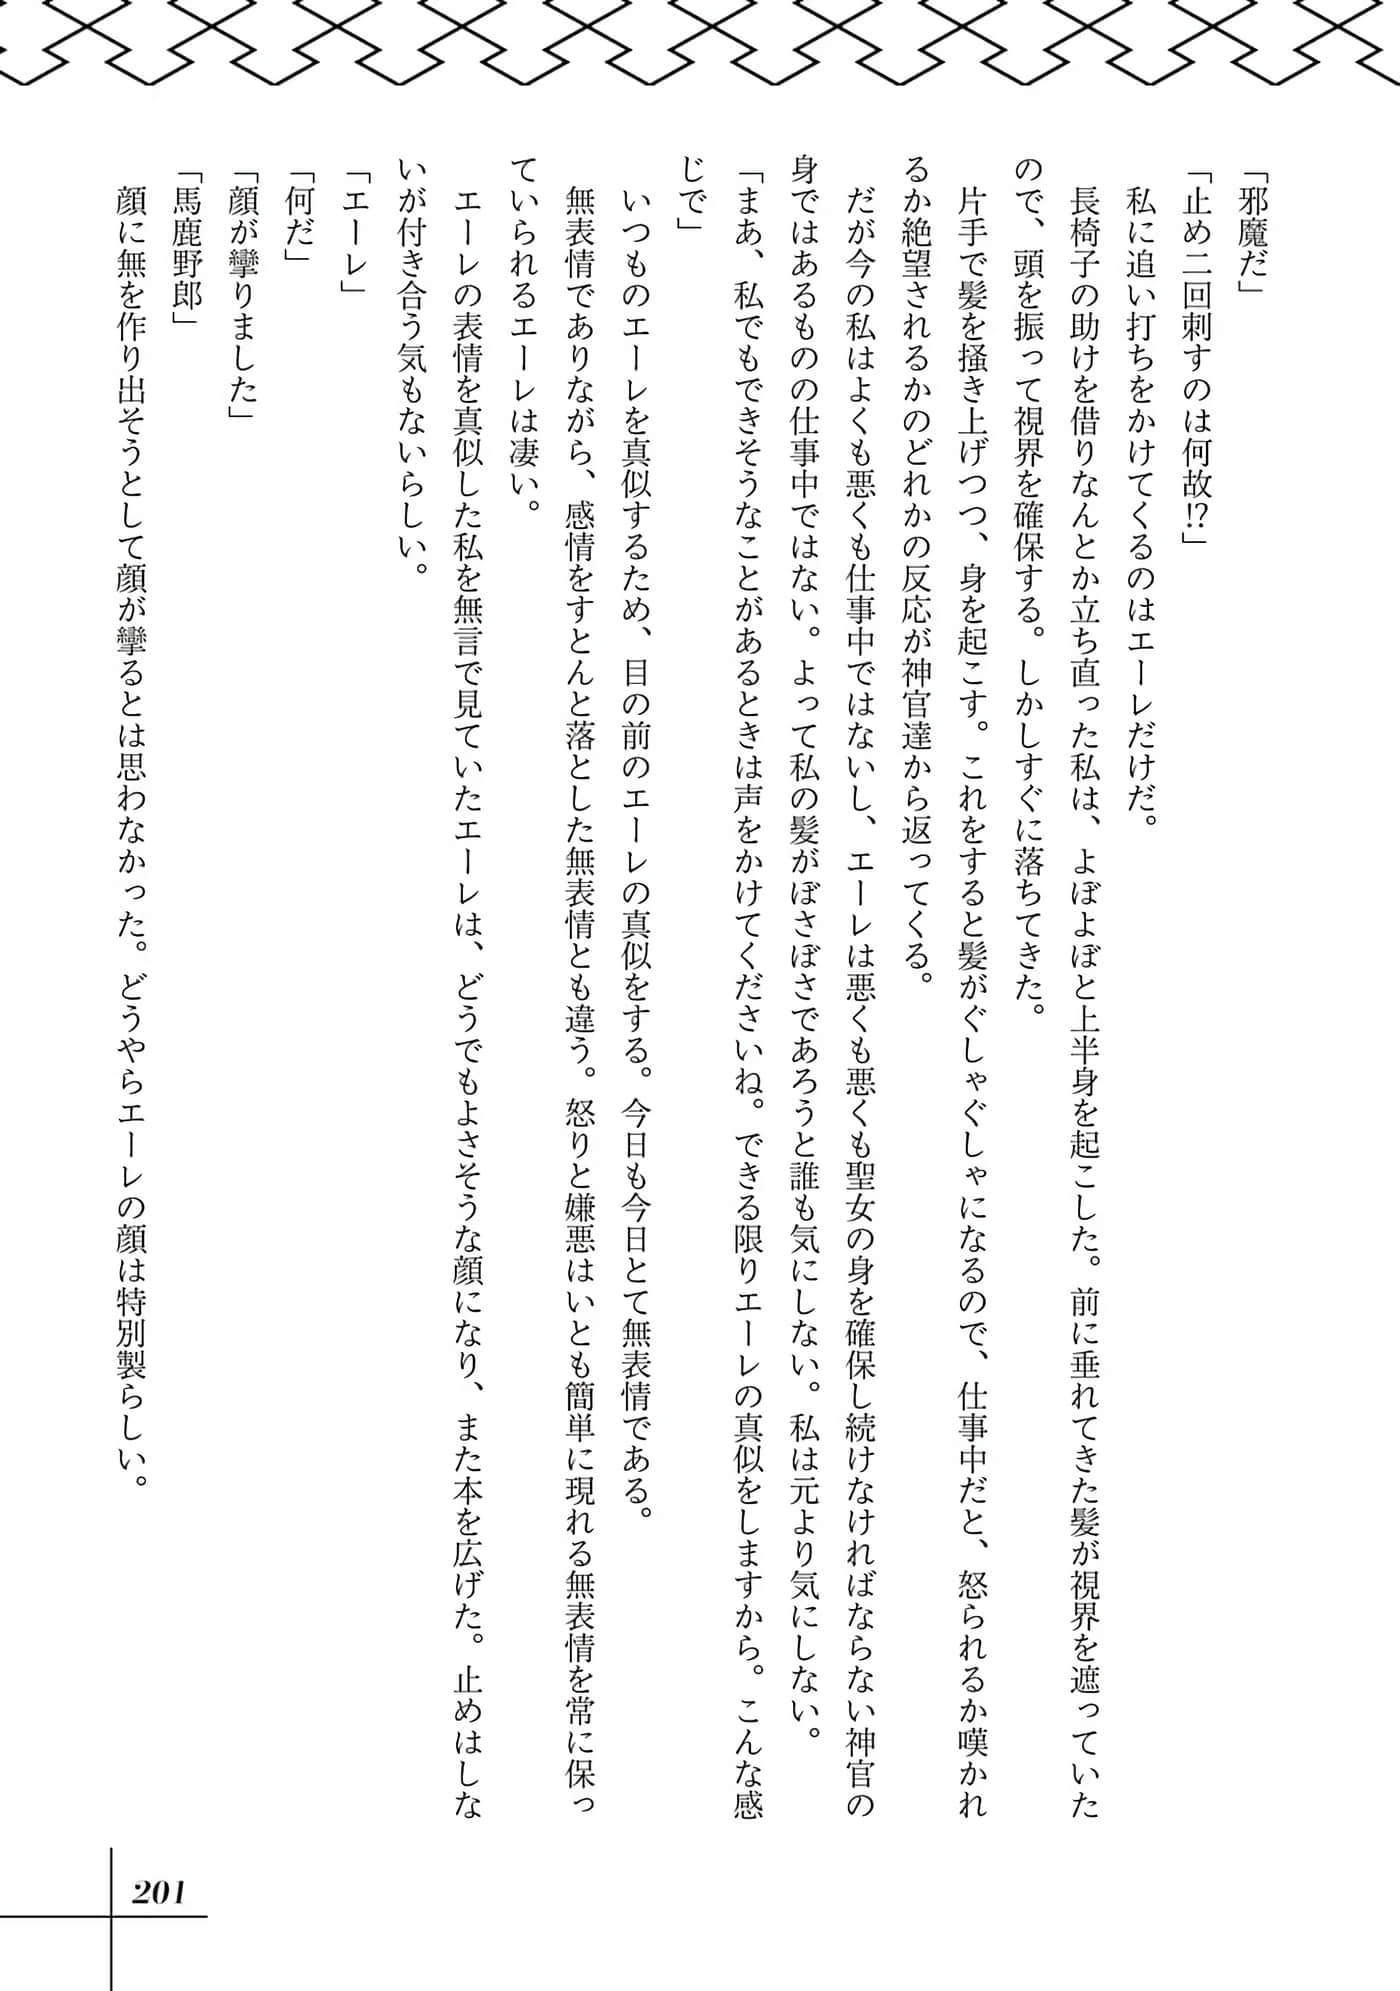 「邪魔だ」
「止め二回刺すのは何故⁉」
　私に追い打ちをかけてくるのはエーレだけだ。
　長椅子の助けを借りなんとか立ち直った私は、よぼよぼと上半身を起こした。前に垂れてきた髪が視界を遮っていた
ので、頭を振って視界を確保する。しかしすぐに落ちてきた。
　片手で髪を掻き上げつつ、身を起こす。これをすると髪がぐしゃぐしゃになるので、仕事中だと、怒られるか嘆かれ
るか絶望されるかのどれかの反応が神官達から返ってくる。
　だが今の私はよくも悪くも仕事中ではないし、エーレは悪くも悪くも聖女の身を確保し続けなければならない神官の
身ではあるものの仕事中ではない。よって私の髪がぼさぼさであろうと誰も気にしない。私は元より気にしない。
「まあ、私でもできそうなことがあるときは声をかけてくださいね。できる限りエーレの真似をしますから。こんな感
じで」
　いつものエーレを真似するため、目の前のエーレの真似をする。今日も今日とて無表情である。
　無表情でありながら、感情をすとんと落とした無表情とも違う。怒りと嫌悪はいとも簡単に現れる無表情を常に保っ
ていられるエーレは凄い。
　エーレの表情を真似した私を無言で見ていたエーレは、どうでもよさそうな顔になり、また本を広げた。止めはしな
いが付き合う気もないらしい。
「エーレ」
「何だ」
「顔が攣りました」
「馬鹿野郎」
　顔に無を作り出そうとして顔が攣るとは思わなかった。どうやらエーレの顔は特別製らしい。
201